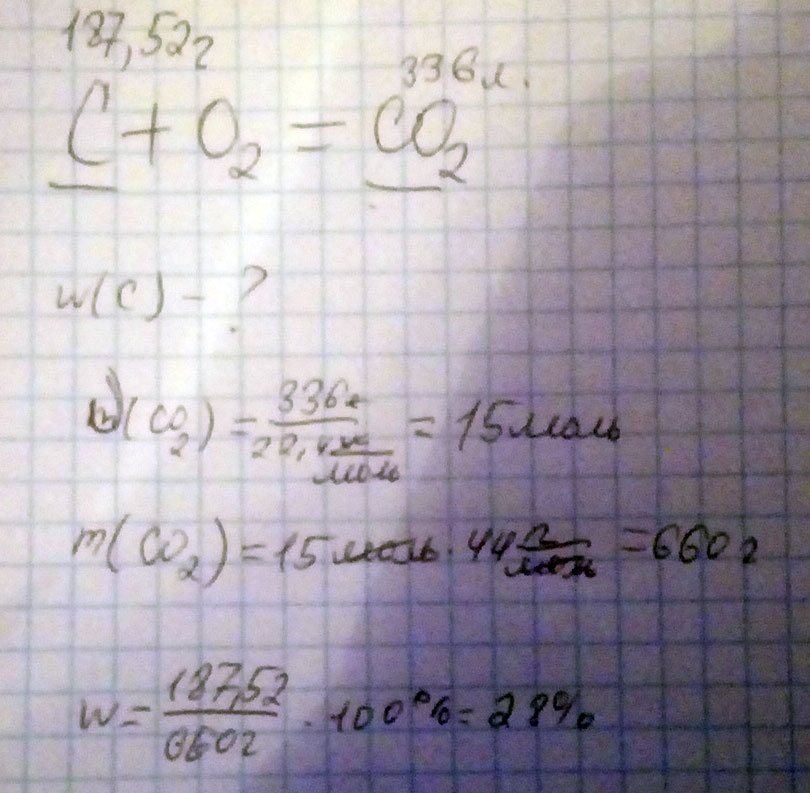 187,52г
336л.
C + O₂ = CO₂
w(C) - ?
ν(CO₂) = 336л / 22,4 л/моль = 15моль
m(CO₂) = 15моль · 44 г/моль = 660г
w = 187,52 / 660г · 100% = 28%